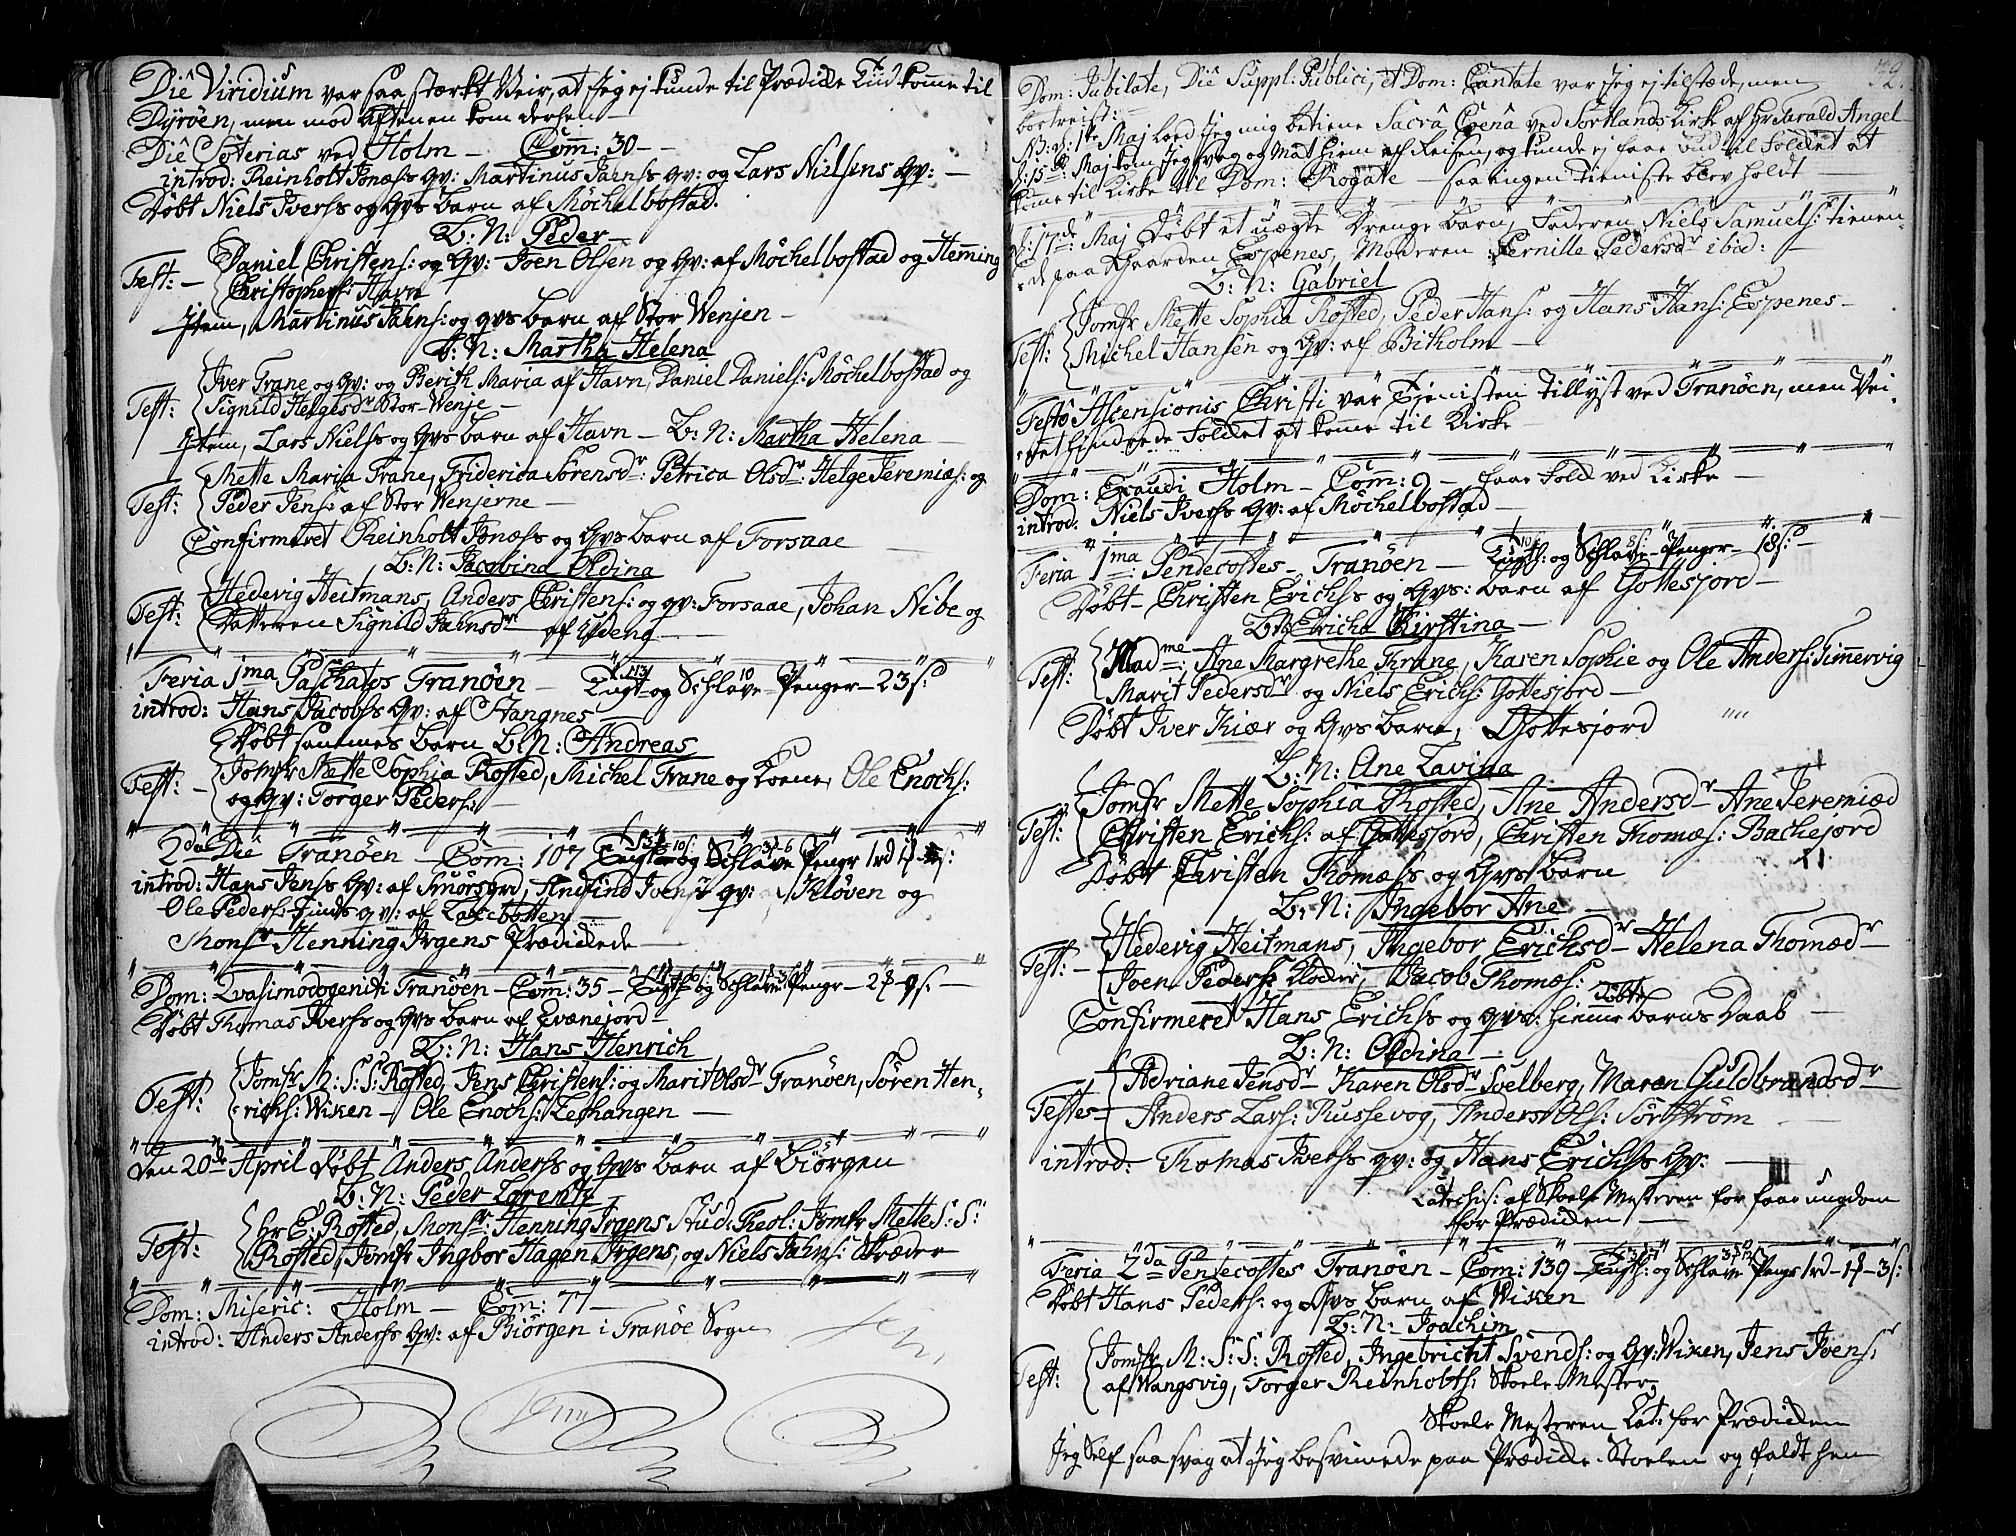 Die Viridium var saa stærkt Veir, at Jeg ej kunde til Prædiken Tiid komme til
Dyrøen, men mod Aftenen kom dersen
Die Soterias ved Holm — Com: 30 —
introd: Reinholt Jonæss qv: Martinus Jahnss qv: og Lars Nielsens qv: —
Døbt Niels Iverss og qvs barn af Møchelbostad.
B: N: Peder
Test: — Daniel Christens: og qv: Joen Olsen og qv: af Møchelbostad og Heming
Christophers: Havn
Item, Martinus Jahns: og qvs barn af Stor Wenjen —
B: N: Martha Helena
Test: Iver Trane og qv: og Berith Maria af Havn, Daniel Daniels: Møchelbostad og
Signild Helgesdr Stor-Wenje —
Item, Lars Nielss og qvs barn af Havn — B: N: Martha Helena —
Test: Mette Maria Trane, Friderica Sørensdr: Petrica Olsdr: Helge Jeremiæs: og
Peder Jens: af Stor Wenjerne —
Confirmeret Reinholt Jonæss og qvs barn af Forsaae
B: N: Jacobina Oldina
Test: Hedevig Heitmans, Anders Christens: og qv: Forsaae, Johan Nibe og
Datteren Signild Jahnsdr af
Feria 1ma Paschatos Tranøen — Tugt og Schlave-Penger — 23 s:
introd: Hans Jacobss qv: af Stangnes
Døbt sammes barn B: N: Andreas
Test: — Jomfr Mette Sophia Rosted, Michel Trane og Koene, Ole Enochs:
og qv: Torger Peders: —
2da Die Tranøen — Com: 107 Tugt og Schlave Penger 1rd
introd: Hans Jenss qv: af Smørsgrd, Andfind Joens: qv: af Kløven og
Ole Peders: Finds qv: af Laxebotten —
Monsr Henning Irgens Prædickede —
Dom: Qvasimodogeniti Tranøen — Com: 35 — Tugt og Schlave Penger —
Døbt Thomas Iverss og qvs barn af Qvænejord —
B: N: Hans Henrich
Test: Jomfr M: S: S: Rosted, Jens Christens: og Marit Olsdr Tranøen, Søren Hen-
richs: Wiken — Ole Enochs: Leihangen —
Den 20de April Døbt Anders Anderss og qvs barn af Biørgen
B: N: Peder Lorentz
Test: Hr E: Rosted, Monsr: Henning Irgens Stud: Theol: Jomfr Mette S: S:
Rosted, Jomfr Ingbor Hagen Irgens, og Niels Jahns: Træder
Dom: Miseric: Holm — Com: 77 —
introd: Anders Anderss qv: af Biørgen i Tranøe Sogn
79.
Dom: Jubilate, Die Suppl: Publici, et Dom: Cantate var Jeg ej tilstæde, men
bortreist: —
NB: d: 1ste Maj loed Jeg mig betiene Sacra Coena ved Sortlands Kirke af Hr Jarald Angel
d: 15de Maj kom Jeg svag og Mat hiem af Reisen, og kunde ej faae bud til Folket at
kome til Kirke til Dom: Rogate — saa ingen Tieniste blev holdt —
d: 17de Maj Døbt et uægte Drenge barn, Faderen Niels Samuels: tienen-
de paa Gaarden Espenes, Moderen Pernille Pedersdr ibid: —
B: N: Gabriel
Test: Jomfr Mette Sophia Rosted, Peder Hans: og Hans Hans: Espenes —
Michel Hansen og qv: af Bitholm —
Festo Ascensionis Christi var Tienisten tillyst ved Tranøen, men Vei-
ret hindrede Folket at kome til Kirke —
Dom: Exaudi Holm — Com: 9 — faae Folk ved Kirke —
introd: Niels Iverss qv: af Møchelbostad —
Feria 1ma Pendecostes — Tranøen — Tugth: og Schlave-Penger — 18 s: —
Døbt — Christen Erichss og qvs: barn af Gottesjord —
B: N: Ericha Kirstina —
Test: Madme: Ane Margrethe Krane, Karen Sophie og Ole Anders: Timmervig
Marit Pedersdr og Niels Erichs: Gottesjord —
Døbt Iver Kiær og qvs barn, Gottesjord
B: N: Ane Lavina
Test: Jomfr Mette Sophia Rosted, Ane Andersdr Ane Jeremiæd
Christen Erichs: af Gottesjord, Christen Thomæs: Bachejord
Døbt Christen Thomæss og qvs barn
B: N: Ingebor Ane —
Test: — Hedevig Heitmans, Ingebor Erichsdr Helena Thomædr —
Joen Peders: Kloder, Jacob Thomæs:
Confirmeret Hans Erichss og qvs: hieme døbte barns Daab —
B: N: Oldina —
Testes — Adriane Jensdr Karen Olsdr Solberg, Maren Guldbrandsdr
Anders Lars: Russevog, Anders Ols: Sørstrøm
introd: Thomas Iverss qv: og Hans Erichss qv: —
Catechis: af Skoele Mesteren for faae ungdom
for Prædicken —
Feria 2da Pentecostes Tranøen — Com: 139 — Tugth: og Schlave Penge 1rd — 1 — 3 s:
Døbt Hans Peders: og qvs barn af Wiken
B: N: Joachim
Test: Jomfr M: S: S: Rosted, Ingebricht Svends: og qv: Wiken, Jens Joens:
af Wangsvig, Torger Reinholts: Skoele Mester,
Skoele Mesteren Cat: for Prædicken
Jeg Self saa svag at Jeg besvimede paa Prædicke-Stoelen og faldt hen